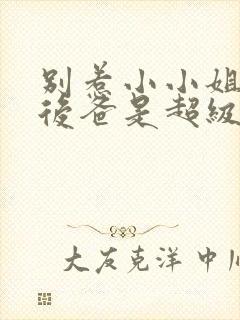 别惹小小姐
後爸是超級
大友克洋 中川